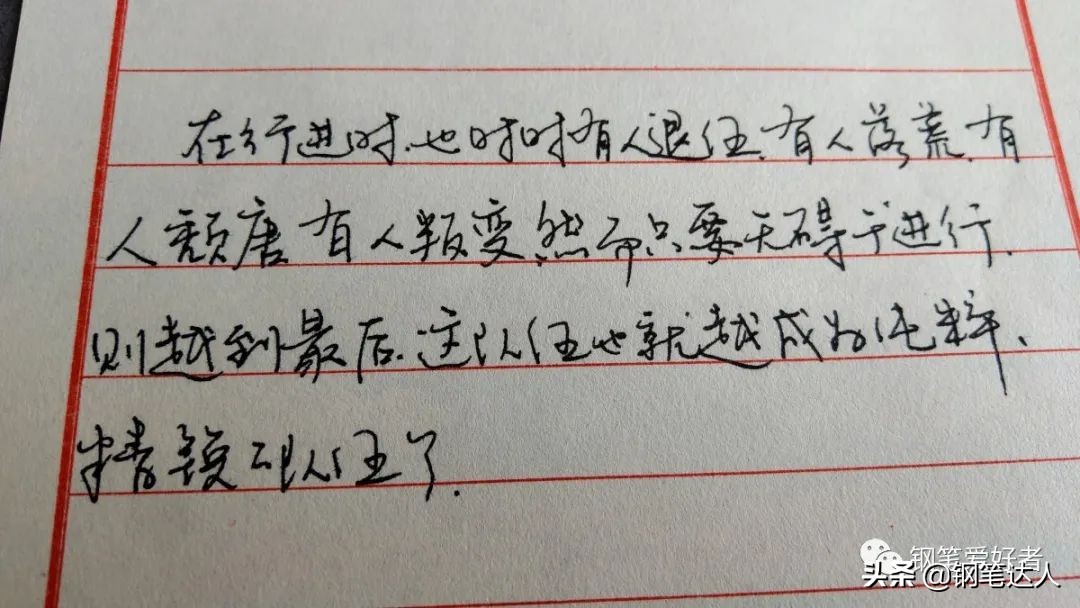 在行进时.也时时有人退伍.有人落荒.有
人颓唐有人叛变.然而只要无碍于进行.
则越到最后.这队伍也就越成为纯粹、
精锐的队伍了.
钢笔爱好者
头条 @钢笔达人